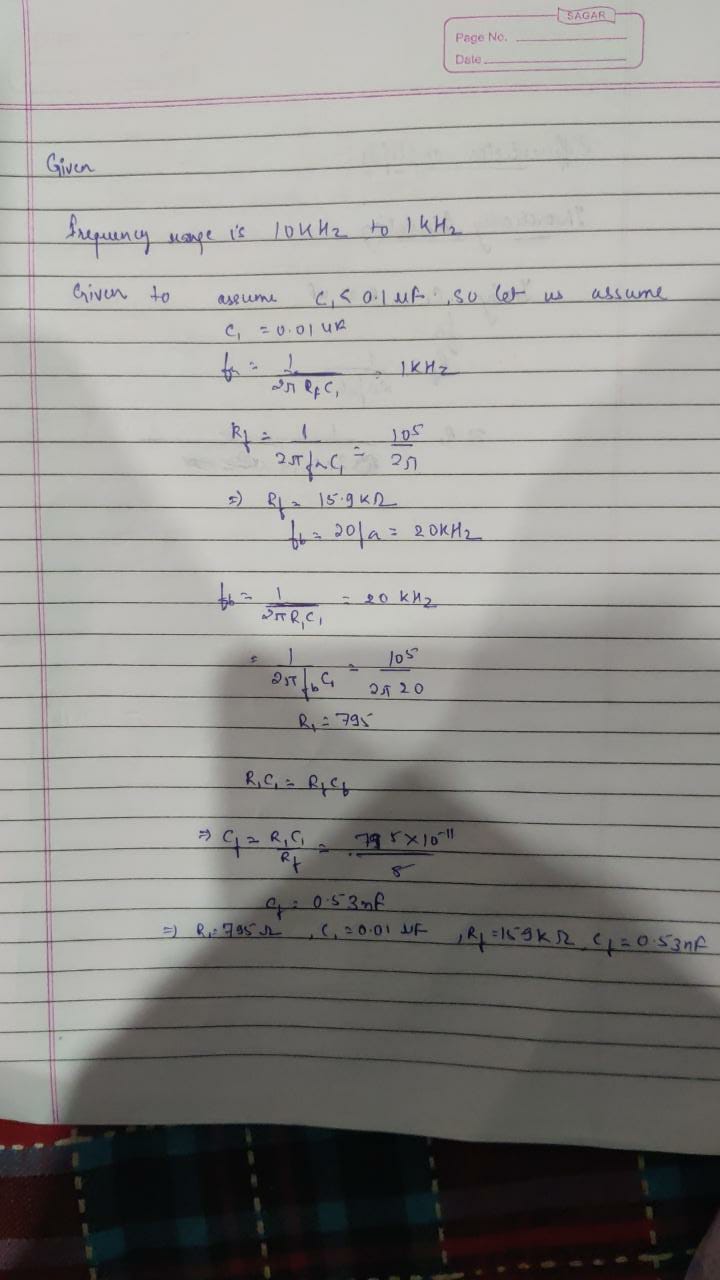 SAGAR
Page No.
Date
Given
frequency range is 10KHz to 1KHz
Given to assume C₁ < 0.1 uF, so let us assume
C₁ = 0.01 uF
fa = 1/2π RfC₁ = 1KHz
Rf = 1/2π faC₁ = 10⁵/2π
=) Rf = 15.9KΩ
fb = 20fa = 20KHz
fb = 1/2πR₁C₁ = 20 KHz
= 1/2π fbC₁ = 10⁵/2π 20
R₁ = 795
R₁C₁ = RfCf
⇒ Cf = R₁C₁/Rf = 795×10⁻¹¹
Cf = 0.53nF
=) R₁=795Ω, C₁=0.01 uF, Rf=159KΩ, Cf=0.53nF